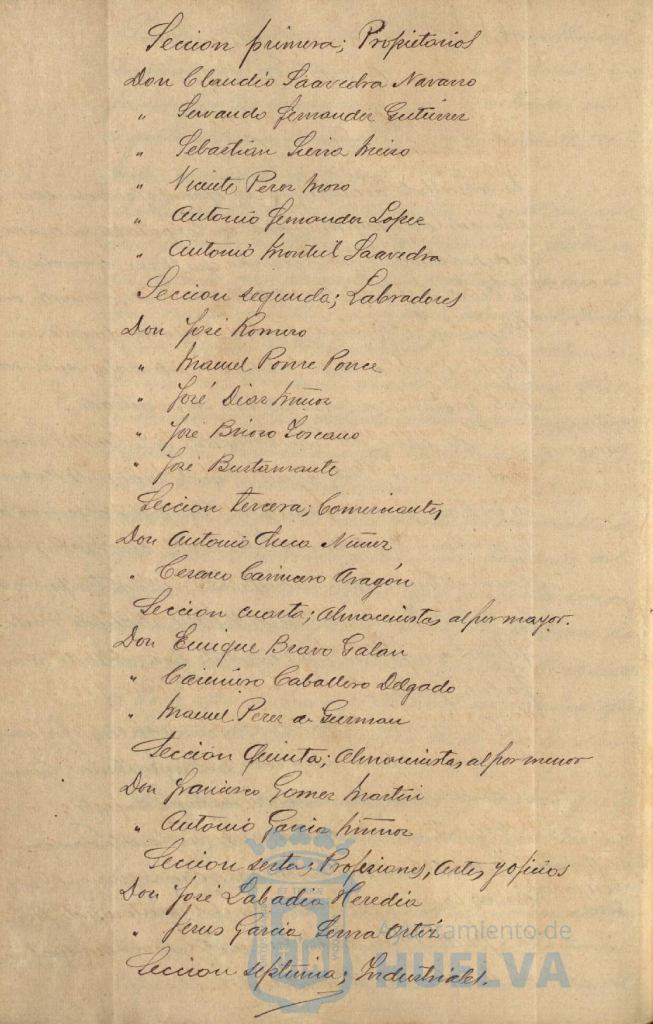 Seccion primera; Propietarios
Don Claudio Saavedra Navarro
" Servando Fernandez Gutierrez
" Sebastian Sierra
" Vicente Perez Moro
" Antonio Fernandez Lopez
" Antonio Montiel Saavedra
Seccion segunda; Labradores
Don José Romero
" Manuel Ponce Ponce
" José Diaz Muñoz
" José Brioso Toscano
" José Bustamante
Seccion tercera; Comerciantes
Don Antonio Checa Nuñez
" Cesareo Carnicero Aragón
Seccion cuarta; Almacenistas al por mayor.
Don Enrique Bravo Galan
" Casimiro Caballero Delgado
" Manuel Perez de Guzman
Seccion Quinta; Almacenistas al por menor
Don Francisco Gomez Martin
" Antonio Garcia Muñoz
Seccion sexta; Profesiones, Artes y oficios
Don José Labadia Heredia
" Jesus Garcia Serna Ortiz
Ayuntamiento de
HUELVA
Seccion septima; Industriales.